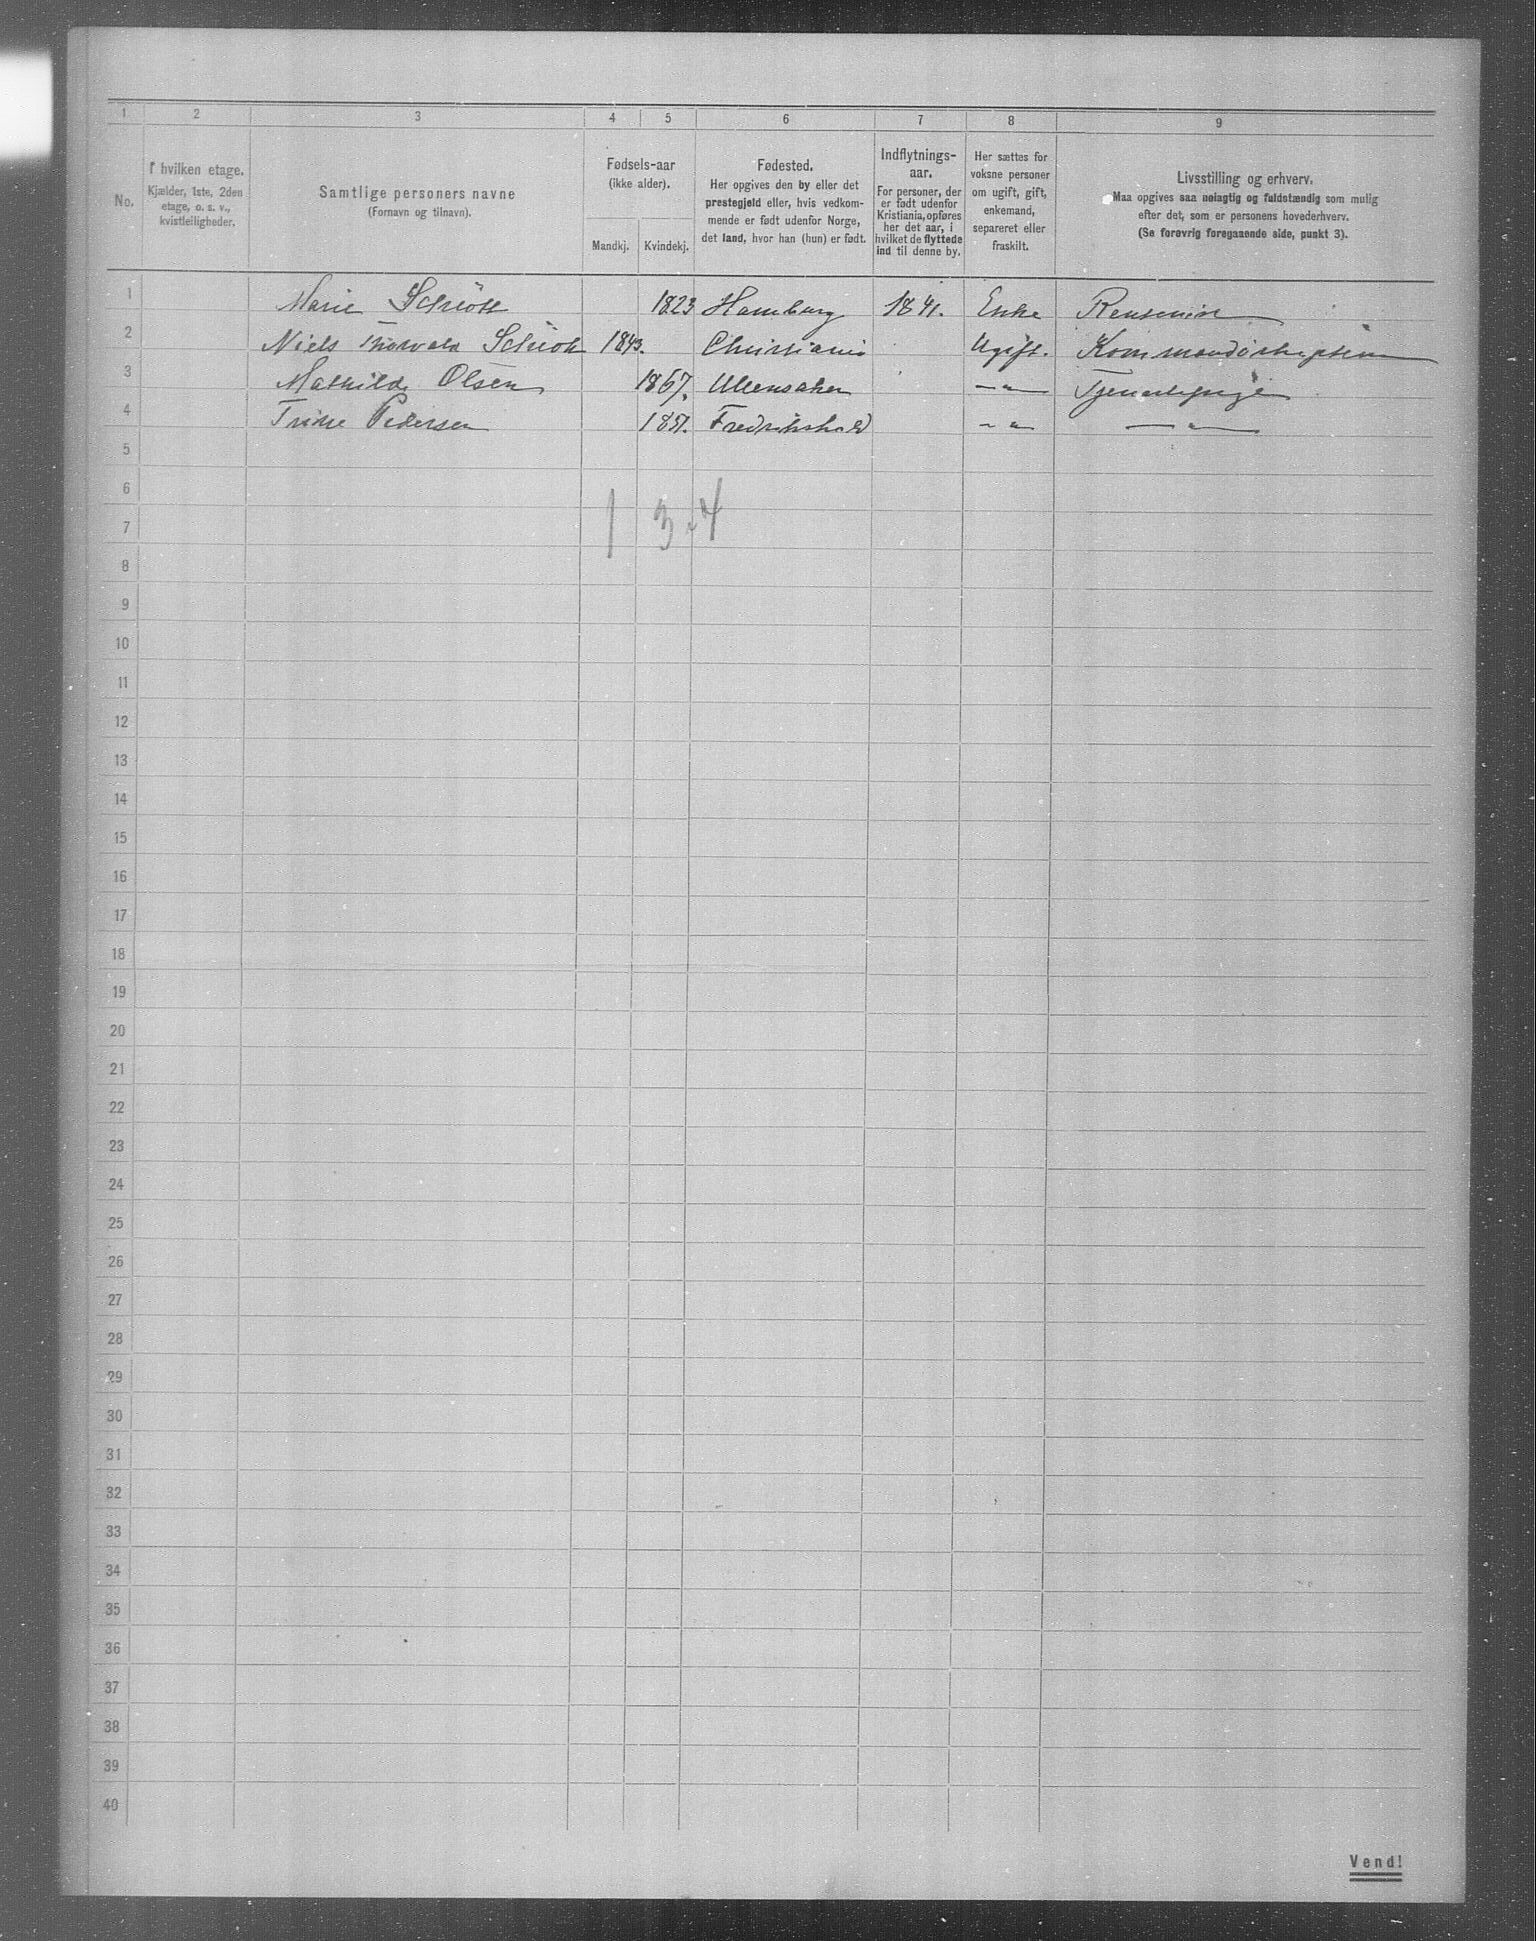 1 2 3 4 5 6 7 8 9
No.
I hvilken etage.
Kjælder, 1ste, 2den
etage, o. s. v.,
kvistleiligheder.
Samtlige personers navne
(Fornavn og tilnavn).
Fødsels-aar
(ikke alder).
Mandkj. Kvindekj.
Fødested.
Her opgives den by eller det
prestegjeld eller, hvis vedkom-
mende er født udenfor Norge,
det land, hvor han (hun) er født.
Indflytnings-
aar.
For personer, der
er født udenfor
Kristiania, opføres
her det aar, i
hvilket de flyttede
ind til denne by.
Her sættes for
voksne personer
om ugift, gift,
enkemand,
separeret eller
fraskilt.
Livsstilling og erhverv.
Maa opgives saa nøiagtig og fuldstændig som mulig
efter det, som er personens hovederhverv.
(Se forøvrig foregaaende side, punkt 3).
1 Marie Schiött 1823 Hamburg 1841. Enke
2 Niels Thorvald Schiött 1843. Christiania Ugift.
3 Mathilde Olsen 1867. Ullensaker —„— Tjenestepige
4 Trine Pedersen 1851. Fredrikshald —„— —„—
5
6
1 3.4
7
8
9
10
11
12
13
14
15
16
17
18
19
20
21
22
23
24
25
26
27
28
29
30
31
32
33
34
35
36
37
38
39
40
Vend!